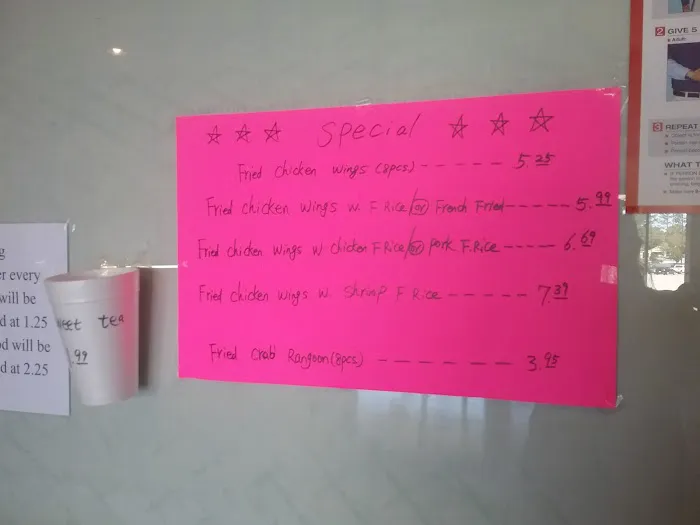 Special
Fried chicken wings (8pcs) ----- 5.25
Fried chicken wings w. F Rice/or French Fried---- 5.99
Fried chicken wings w chicken F Rice/or pork F.Rice ---- 6.69
Fried chicken wings w. Shrimp F Rice ----- 7.39
Fried Crab Rangoon (8pcs) ------ 3.95
er every
will be
d at 1.25
od will be
d at 2.25
weet tea
.99
2 GIVE 5
3 REPEAT
WHAT